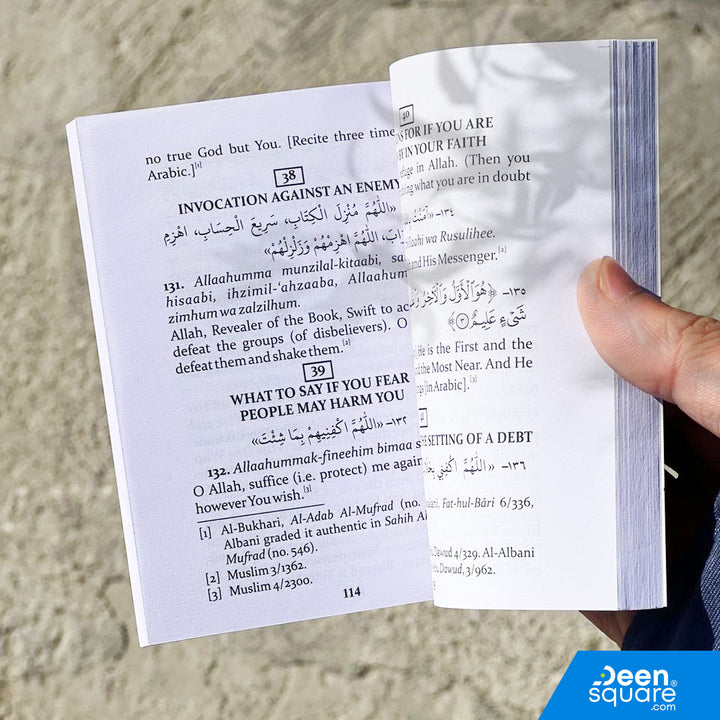 no true God but You. [Recite three time
Arabic.][1]
38
INVOCATION AGAINST AN ENEMY
«اللَّهُمَّ مُنْزِلَ الْكِتَابِ، سَرِيعَ الْحِسَابِ، اهْزِمِ
اللَّهُمَّ اهْزِمْهُمْ وَزَلْزِلْهُمْ»
131. Allaahumma munzilal-kitaabi, sa
hisaabi, ihzimil-'ahzaaba, Allaahum
zimhum wa zalzilhum.
Allah, Revealer of the Book, Swift to ac
defeat the groups (of disbelievers). O
defeat them and shake them.[2]
39
WHAT TO SAY IF YOU FEAR
PEOPLE MAY HARM YOU
١٣٢– «اللَّهُمَّ اكْفِنِيهِمْ بِمَا شِئْتَ»
132. Allaahummak-fineehim bimaa s
O Allah, suffice (i.e. protect) me again
however You wish.[3]
[1] Al-Bukhari, Al-Adab Al-Mufrad (no.
Albani graded it authentic in Sahih Al
Mufrad (no. 546).
[2] Muslim 3/1362.
[3] Muslim 4/2300.
114
40
S FOR IF YOU ARE
Y IN YOUR FAITH
efuge in Allah. (Then you
ing what you are in doubt
١٣٤– «آمَنْتُ
laahi wa Rusulihee.
and His Messenger.[2]
١٣٥– ﴿هُوَ الْأَوَّلُ وَالْآخِرُ
شَيْءٍ عَلِيمٌ ﴿٣﴾﴾
He is the First and the
d the Most Near. And He
gs [in Arabic].[3]
HE SETTING OF A DEBT
١٣٦– «اللَّهُمَّ اكْفِنِي
alani. Fat-hul-Bâri 6/336,
u Dawud 4/329. Al-Albani
Dawud, 3/962.
Deen
square®
.com